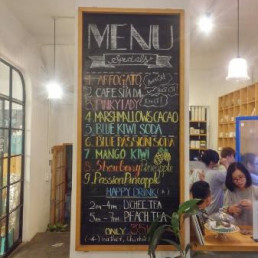 MENU
Specials
1. AFFOGATO
2. CAFE SHADA
3. PINKY LADY
4. MARSHMALLOWS CACAO
5. BLUE KIWI SODA
6. BLUE PASSION SODA
7. MANGO KIWI
8. Strawberry Pineapple
9. Passion Pineapple
HAPPY DRINK
2PM-4PM : DOIEE TEA
5PM-7PM : PEACH TEA
ONLY 35